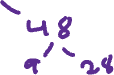 48
9 28